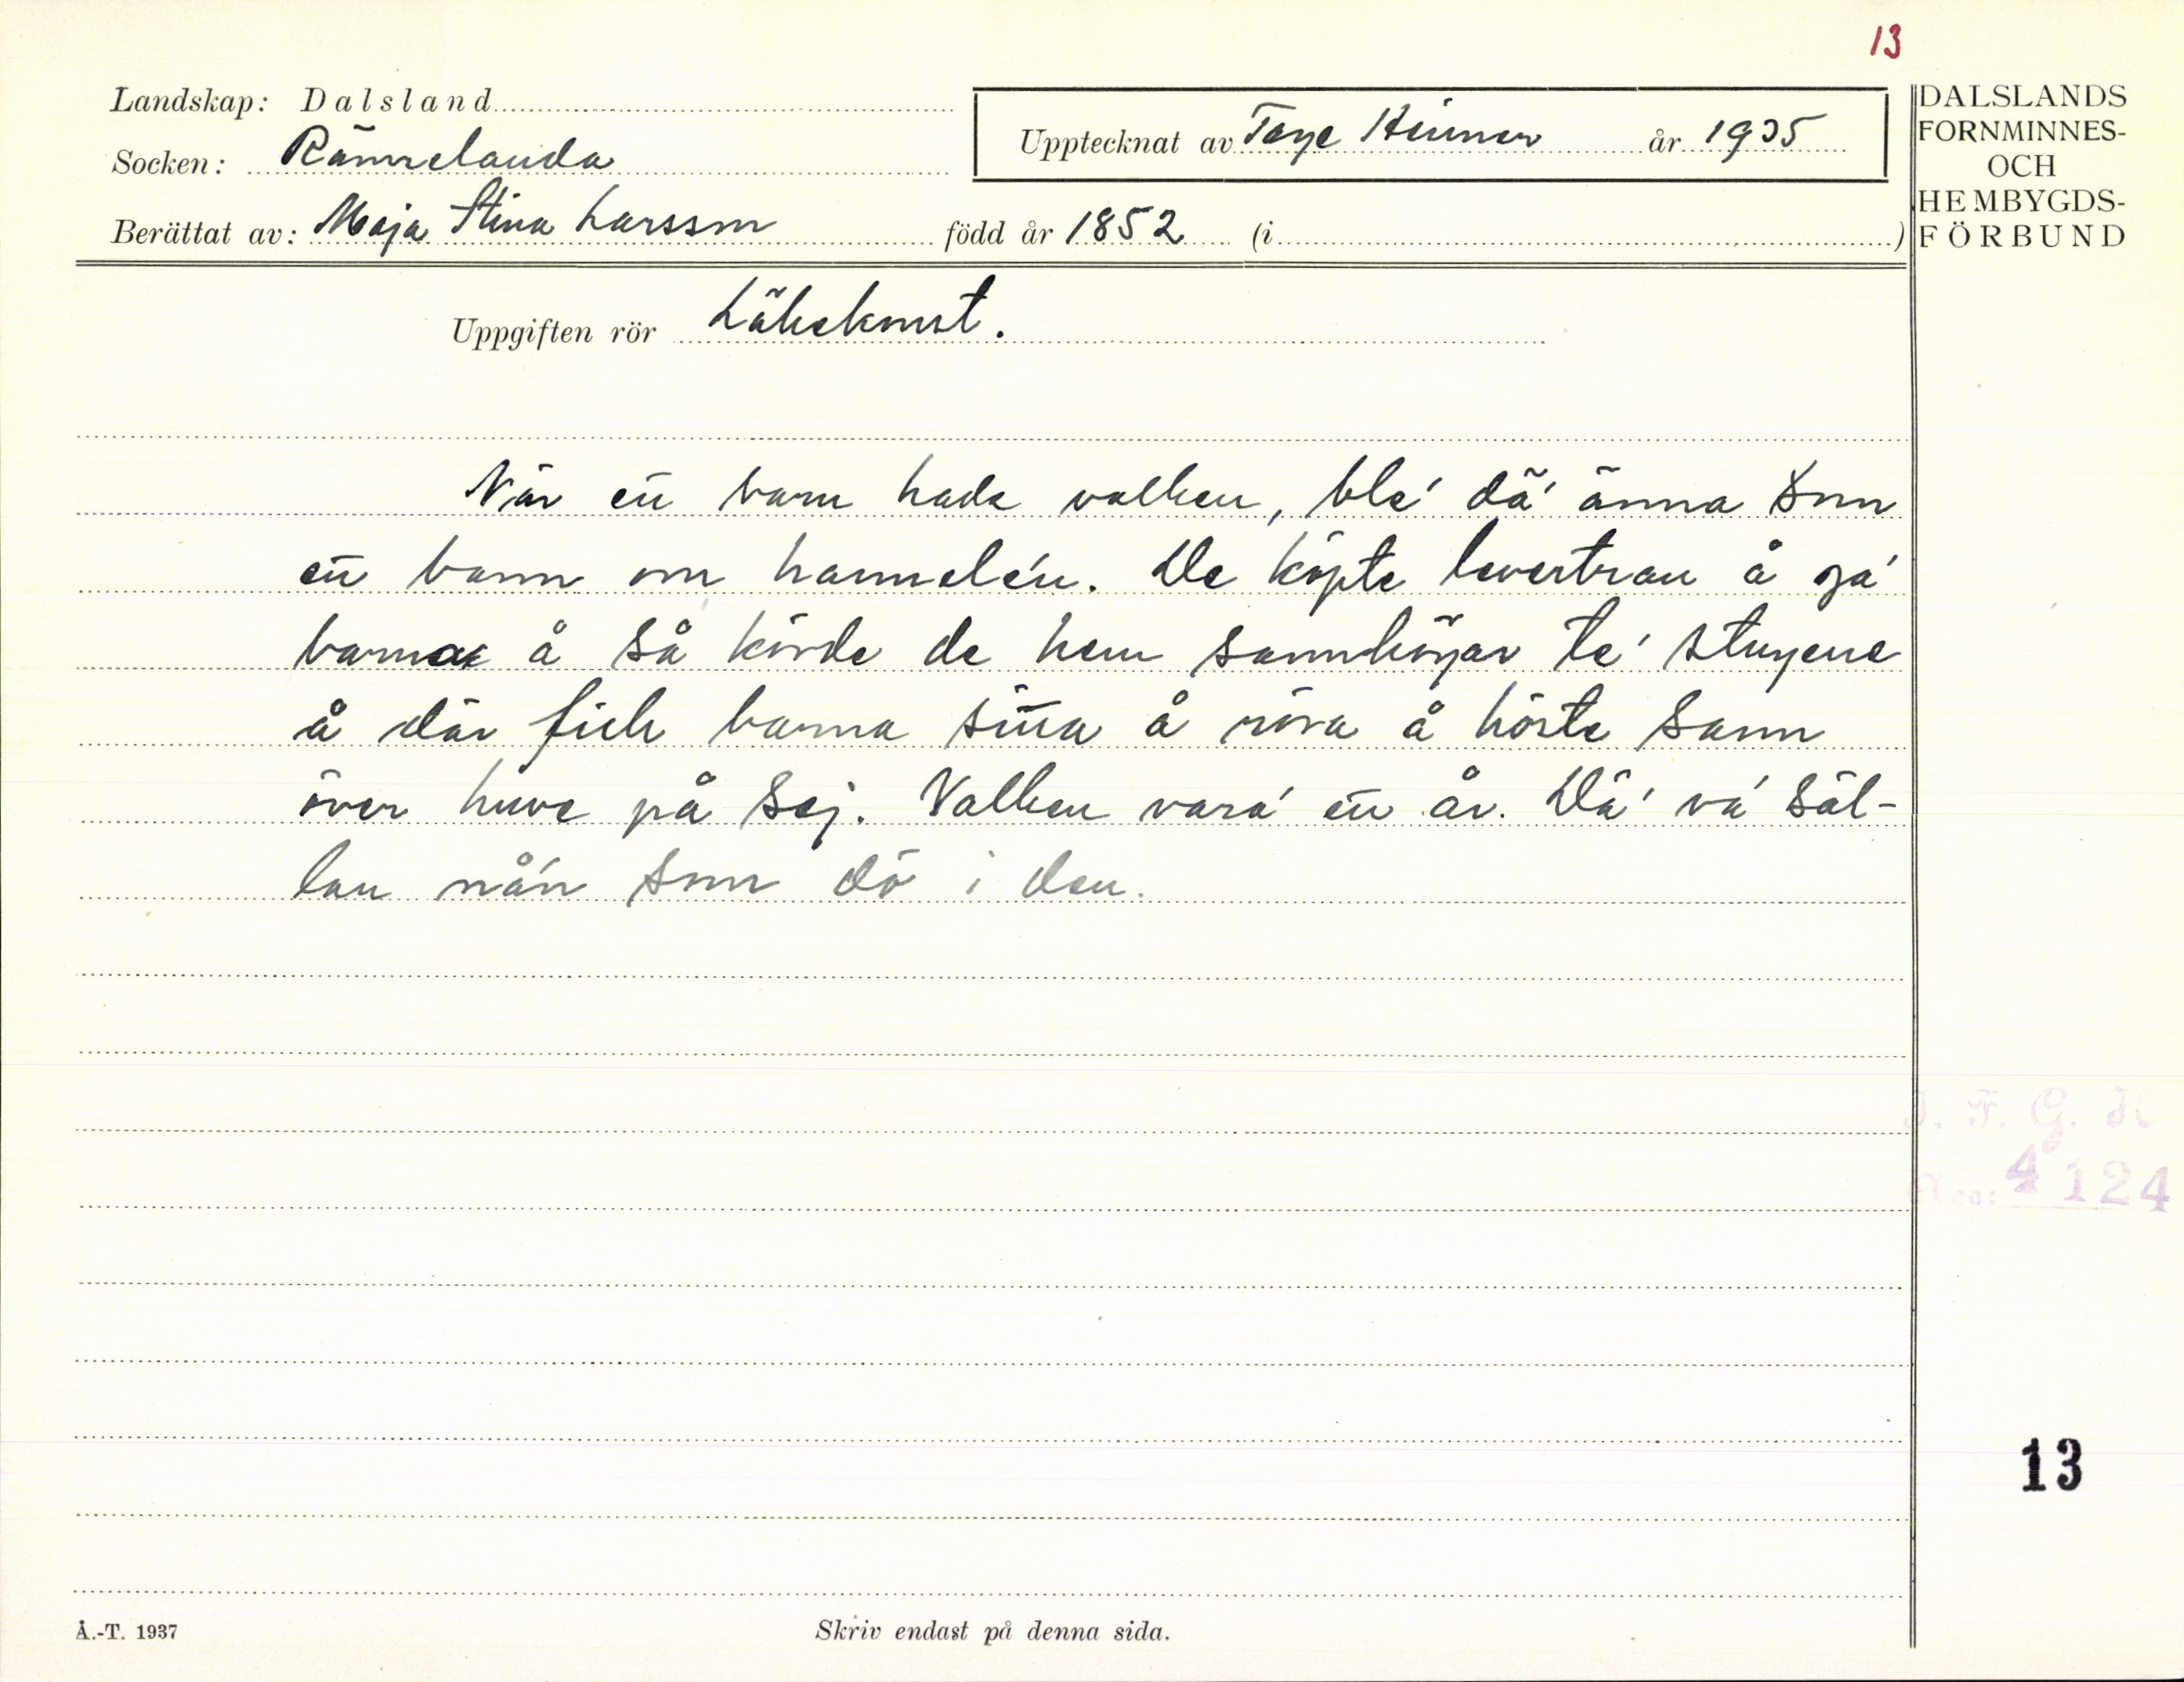 13
Landskap: Dalsland
Socken: Rännelanda
Berättat av: Maja Stina Larsson född år 1852 (i )
Upptecknat av Tage Heimer år 1935
DALSLANDS
FORNMINNES-
OCH
HEMBYGDS-
FÖRBUND
Uppgiften rör Läkekonst.
När en barn hade valken, ble' dä' änna som
en bann om hannelén. De köpte levertran å ga'
barna å så körde de hem sannhögar te' stugene
å där fick barna sitta å röra å höste sann
över huve på sej. Valken vara' en år. Dä' va' säl-
lan nå'n som dö i den.
I. F. G. H
Acc: 4124
13
Å.-T. 1937
Skriv endast på denna sida.